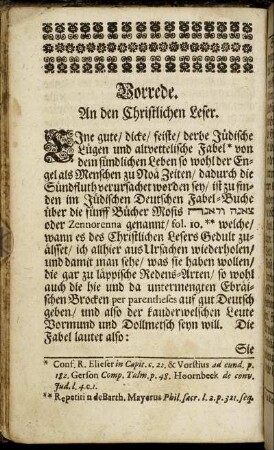 Vorrede.
An den Christlichen Leser.
EIne gute/ dicke/ feiste/ derbe Jüdische
Lügen und altvettelische Fabel* von
dem sündlichen Leben so wohl der En-
gel als Menschen zu Noä Zeiten/ dadurch die
Sündfluth verursachet worden sey/ ist zu fin-
den im Jüdischen Deutschen Fabel-Buche
über die fünff Bücher Mosis צאנה וראנה
oder Zennorenna genannt/ fol. 10. ** welche/
wann es des Christlichen Lesers Gedult zu-
lässet/ ich allhier aus Ursachen wiederholen/
und damit man sehe/ was sie haben wollen/
die gar zu läppische Redens-Arten/ so wohl
auch die hie und da untermengten Ebräi-
schen Brocken per parentheses auf gut Deutsch
geben/ und also der kauderwelschen Leute
Vormund und Dollmetsch seyn will. Die
Fabel lautet also:
Sie
* Conf. R. Elieser in Capit. c. 21. & Vorstius ad eund. p.
182. Gerson Comp. Talm. p. 48. Hoornbeek de conv.
Jud. l. 4. c. 1.
** Repetiit ndeBarth. Mayerus Phil. sacr. l. 2. p. 321. seq.